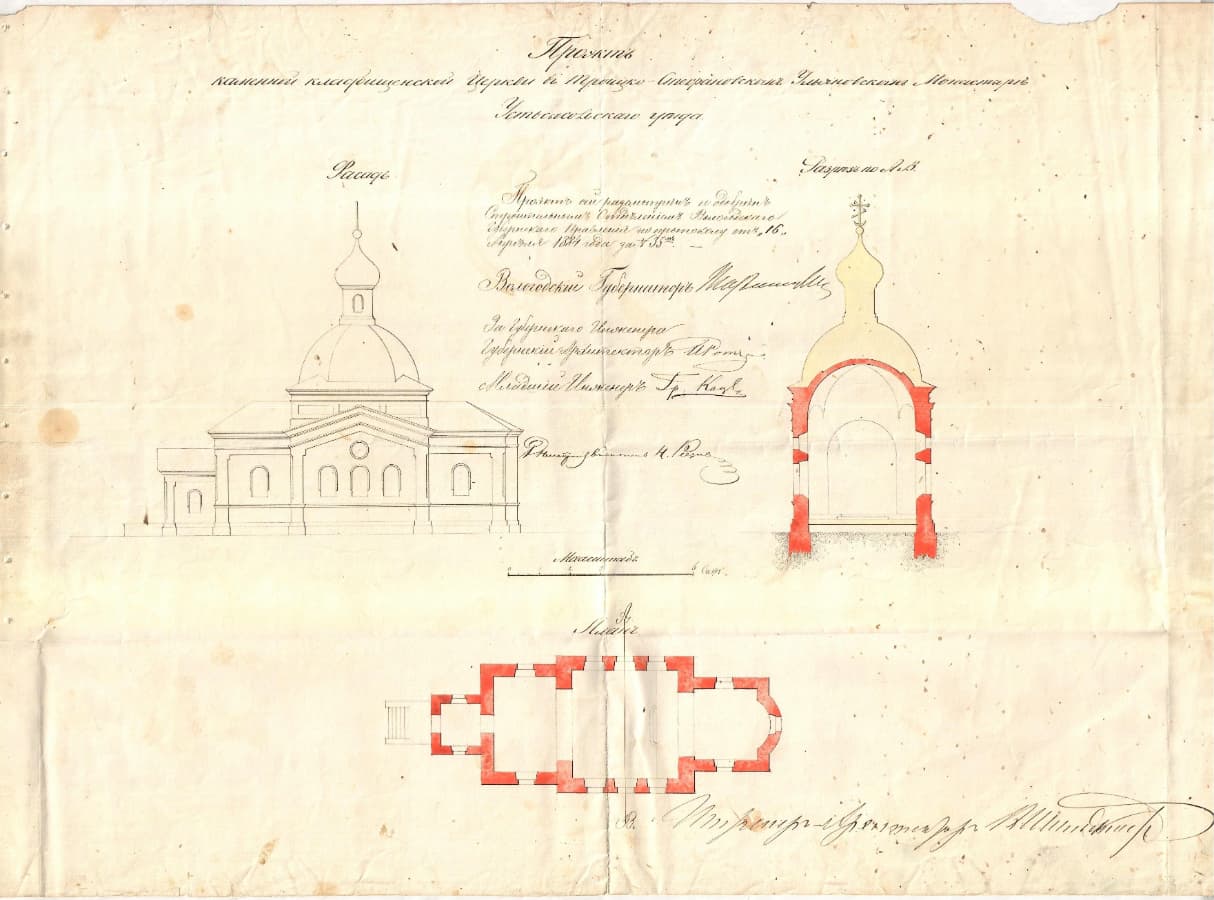 Проэктъ
каменной кладбищенской Церкви въ Троицко-Стефановскомъ Ульяновскомъ Монастырѣ
Устьсысольскаго уѣзда.
Фасадъ
Разрѣзъ по А.В.
Проэктъ сей разсмотрѣнъ и одобренъ
Строительнымъ Отдѣленіемъ Вологодскаго
Губернскаго Правленія по протоколу отъ „16„
Апрѣля 1881 года за №35ᵐ.
Вологодскій Губернаторъ
За Губернскаго Инженера
Губернскій Архитекторъ
Младшій Инженеръ Гр.
Масштабъ.
6 Саж.
Планъ
А.
В.